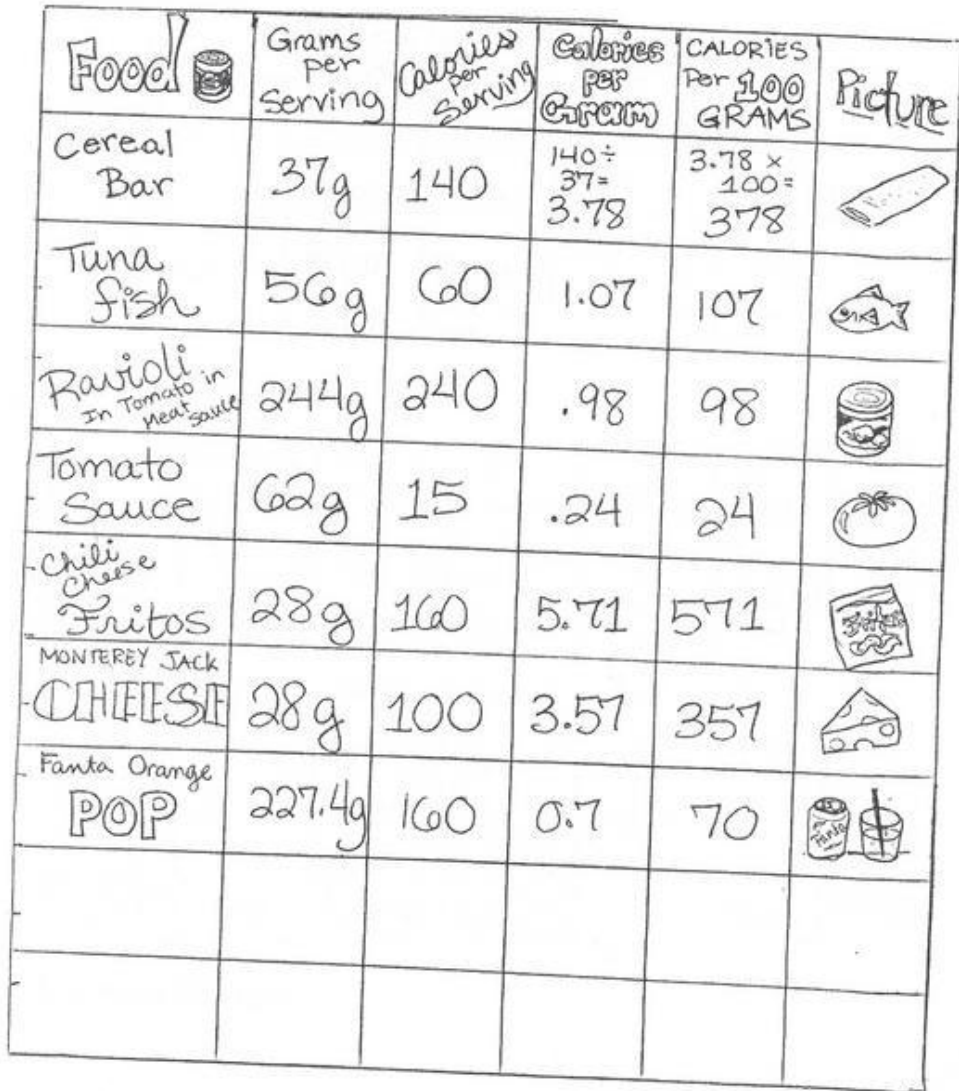 Food
Grams
per
Serving
Calories
per
Serving
Calories
per
Gram
CALORIES
Per 100
GRAMS
Picture
Cereal
Bar
37g
140
140÷
37=
3.78
3.78 ×
100=
378
Tuna
fish
56g
60
1.07
107
Ravioli
In Tomato in
Meat Sauce
244g
240
.98
98
Tomato
Sauce
62g
15
.24
24
Chili
Cheese
Fritos
28g
160
5.71
571
Fritos
MONTEREY JACK
CHEESE
28g
100
3.57
357
Fanta Orange
POP
227.4g
160
0.7
70
Fanta